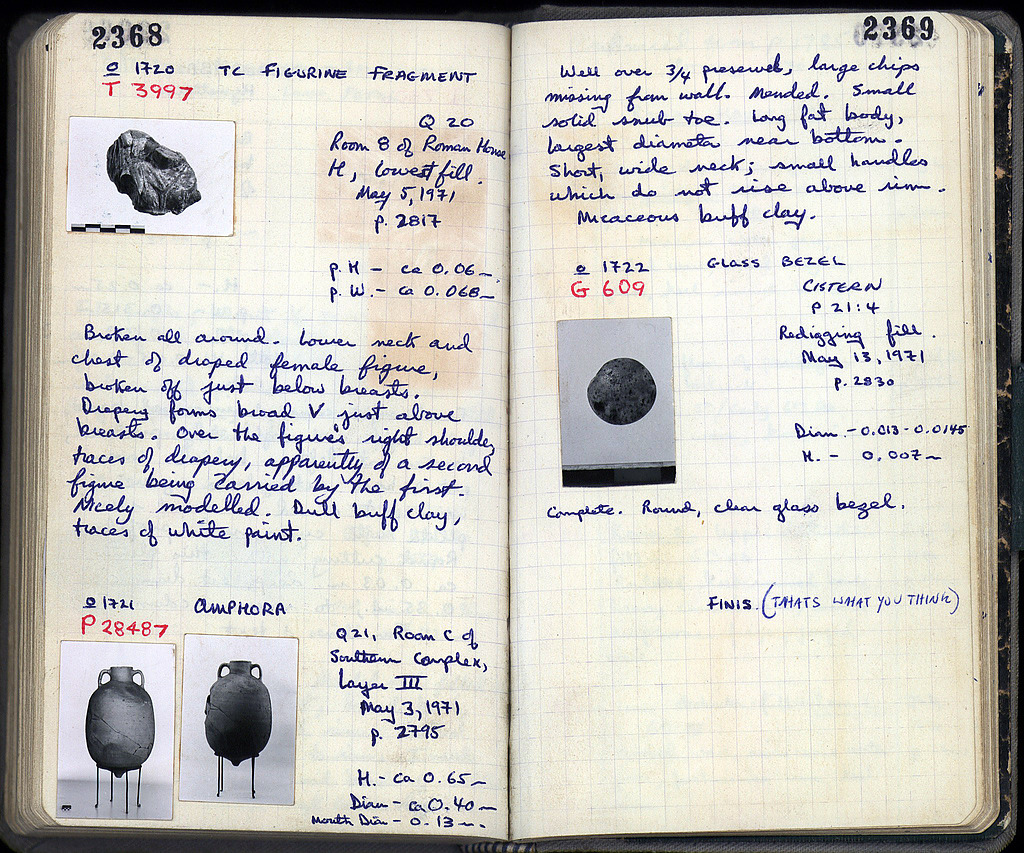 2368
O 1720 TC FIGURINE FRAGMENT
T 3997
Q 20
Room 8 of Roman House
H, lowest fill.
May 5, 1971
p. 2817
p. H - ca 0.06
p. W. - ca 0.068
Broken all around. Lower neck and
chest of draped female figure,
broken off just below breasts.
Drapery forms broad V just above
breasts. Over the figure's right shoulder
traces of drapery, apparently of a second
figure being carried by the first.
Nicely modelled. Dull buff clay,
traces of white paint.
O 1721 AMPHORA
P 28487
Q21, Room C of
Southern Complex,
Layer III
May 3, 1971
p. 2795
H. - ca 0.65
Diam - ca 0.40
Mouth Diam - 0.13
2369
Well over 3/4 preserved, large chips
missing from wall. Mended. Small
solid snub toe. Long fat body,
largest diameter near bottom.
Short, wide neck; small handles
which do not rise above rim.
Micaceous buff clay.
O 1722 GLASS BEZEL
G 609
CISTERN
P 21:4
Redigging fill.
May 13, 1971
p. 2830
Diam. - 0.013 - 0.0145
H. - 0.007
Complete. Round, clear glass bezel.
FINIS. (TAHATS WHAT YOU THINK)